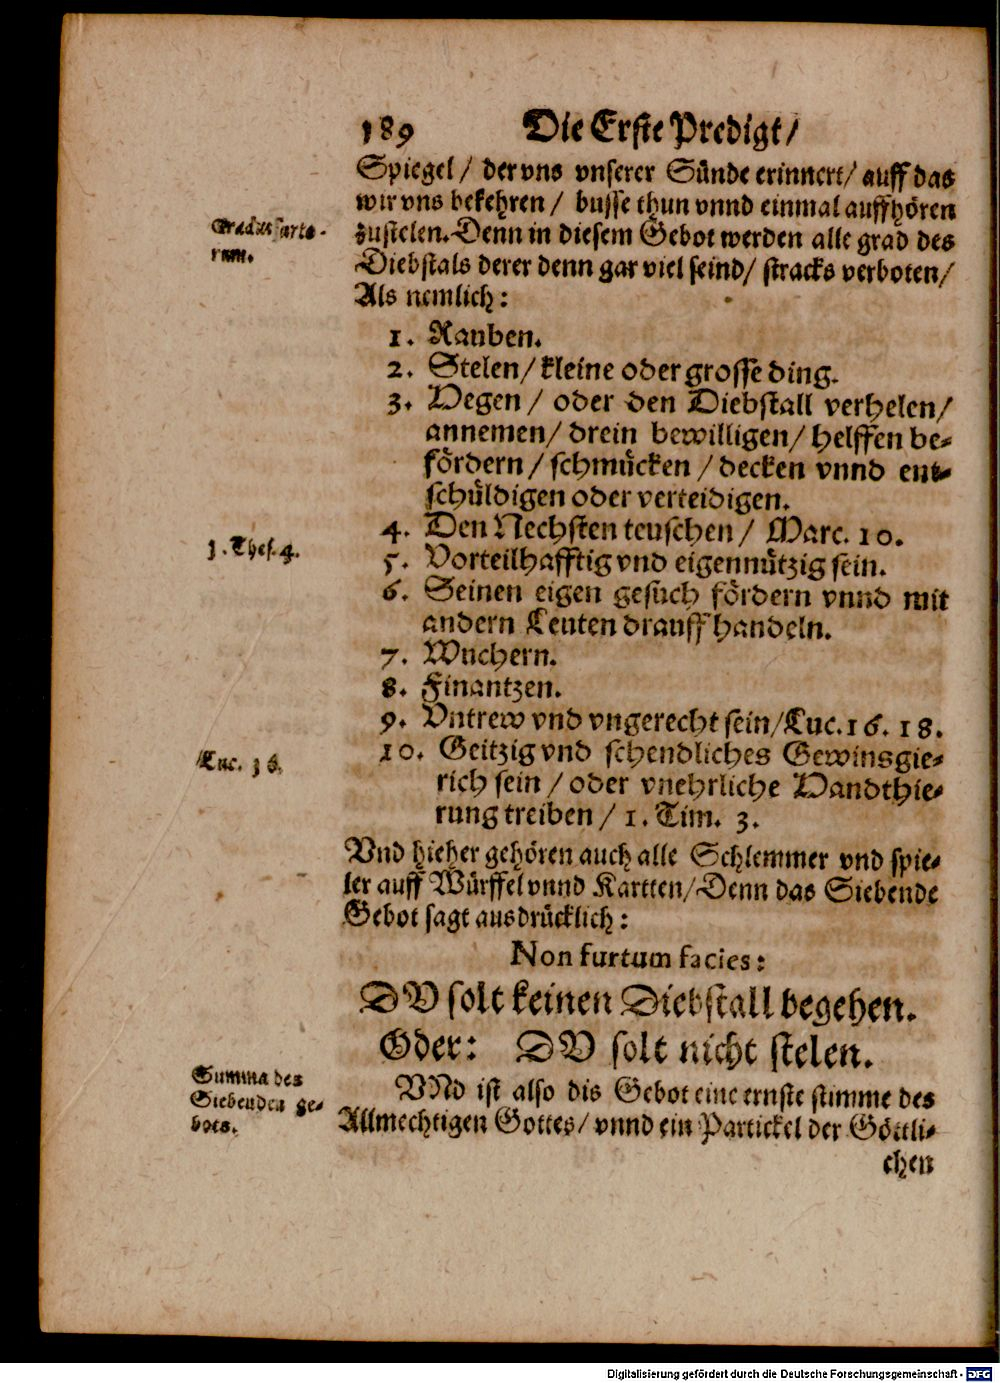 189 Die Erste Predigt/
Spiegel/ der vns vnserer Sünde erinnert/ auff das
wir vns bekehren/ busse thun vnnd einmal auffhören
Gradus furto-
rum.
zustelen. Denn in diesem Gebot werden alle grad des
Diebstals derer denn gar viel seind/ stracks verboten/
Als nemlich:
1. Rauben.
2. Stelen/ kleine oder grosse ding.
3. Hegen/ oder den Diebstall verhelen/
annemen/ drein bewilligen/ helffen be-
fördern/ schmücken/ decken vnnd ent-
schüldigen oder verteidigen.
4. Den Nechsten teuschen/ Marc. 10.
1. Thes. 4.
5. Vorteilhafftig vnd eigennützig sein.
6. Seinen eigen gesuch fördern vnnd mit
andern Leuten drauff handeln.
7. Wuchern.
8. Finantzen.
9. Vntrew vnd vngerecht sein/ Luc. 16. 18.
Luc. 16.
10. Geitzig vnd schendliches Gewinsgie-
rich sein/ oder vnehrliche Handthie-
rung treiben/ 1. Tim. 3.
Vnd hieher gehören auch alle Schlemmer vnd spie-
ler auff Würffel vnnd Kartten/ Denn das Siebende
Gebot sagt ausdrücklich:
Non furtum facies:
DV solt keinen Diebstall begehen.
Oder: DV solt nicht stelen.
Summa des
Siebenden ge-
bots.
VNd ist also dis Gebot eine ernste stimme des
Allmechtigen Gottes/ vnnd ein Partickel der Göttli-
chen
Digitalisierung gefördert durch die Deutsche Forschungsgemeinschaft - DFG